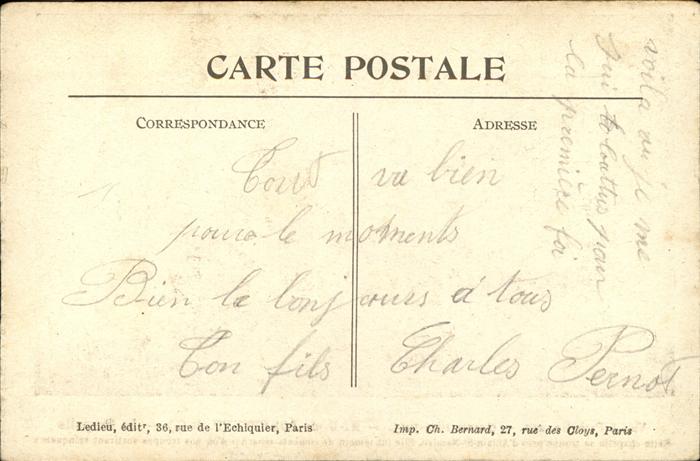 CARTE POSTALE
CORRESPONDANCE
ADRESSE
Tout va bien
pour le moments
Bien le bonjours a tous
Ton fils Charles Pernot
voila ou je me
suis battus pour
la première foi
Ledieu, éditr, 36, rue de l'Echiquier, Paris
Imp. Ch. Bernard, 27, rue des Cloys, Paris